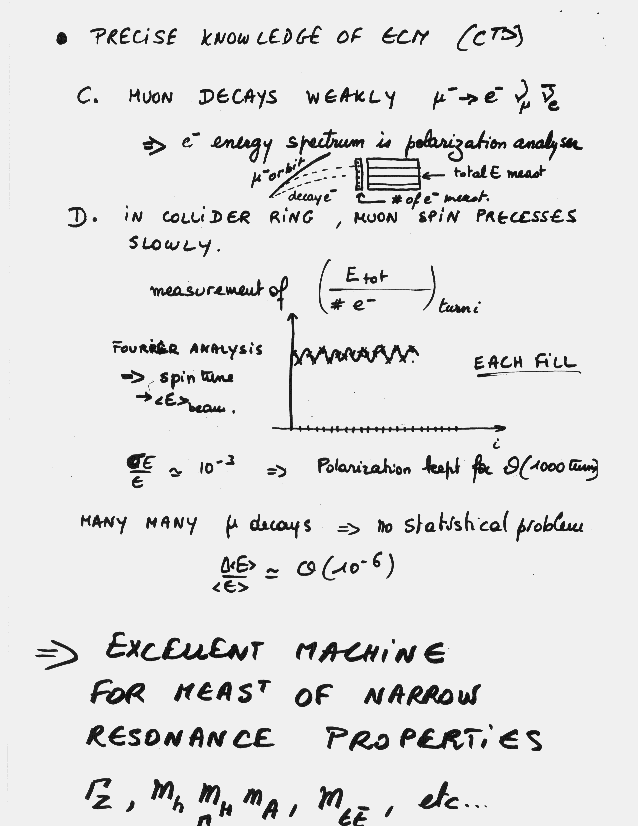 • PRECISE KNOWLEDGE OF ECM (CTD)
C. MUON DECAYS WEAKLY μ⁻→ e⁻ ν_μ ν̄_e
⇒ e⁻ energy spectrum is polarization analyser
μ⁻orbit
decay e⁻
← total E meast
# of e⁻ meast.
D. IN COLLIDER RING, MUON SPIN PRECESSES
SLOWLY.
measurement of (E tot / # e⁻) turn i
FOURIER ANALYSIS
⇒ spin tune
→ <E> beam.
EACH FILL
i
σE/E ≃ 10⁻³ ⇒ Polarization kept for O(1000 turns)
MANY MANY μ decays ⇒ no statistical problem
Δ<E>/<E> ≃ O(10⁻⁶)
⇒ EXCELLENT MACHINE
FOR MEASᵀ OF NARROW
RESONANCE PROPERTIES
Γ_Z, m_h m_H m_A, m_tt̄, etc...